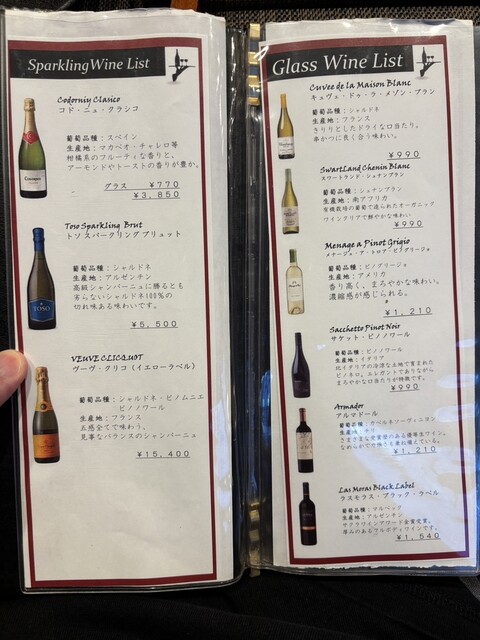 Sparkling Wine List
Codorniy Clasico
コドー・ニュ・クラシコ
葡萄品種：スペイン
生産地：マカベオ・チャレロ等
柑橘系のフルーティな香りと、
アーモンドやトーストの香りが豊か。
グラス ￥770
￥3,850
Toso Sparkling Brut
トソスパークリングブリュット
葡萄品種：シャルドネ
生産地：アルゼンチン
高級シャンパーニュに勝るとも
劣らないシャルドネ100%の
切れ味ある味わいです。
￥5,500
VEUVE CLICQUOT
ヴーヴ・クリコ（イエローラベル）
葡萄品種：シャルドネ・ピノムニエ
ピノノワール
生産地：フランス
五感全てで味わう、
見事なバランスのシャンパーニュ
￥15,400
Glass Wine List
Cuvee de la Maison Blanc
キュヴェ・ドゥ・ラ・メゾン・ブラン
葡萄品種：シャルドネ
生産地：フランス
きりりとしたドライな口当たり。
串かつに良く合う味わい。
￥990
SwartLand Chenin Blanc
スワートランド・シュナンブラン
葡萄品種：シュナンブラン
生産地：南アフリカ
有機栽培の葡萄で造られたオーガニック
ワインクリアで鮮やかな味わい
￥990
Menage a Pinot Grigio
メナージュ・ア・トロア・ピノグリージョ
葡萄品種：ピノグリージョ
生産地：アメリカ
香り高く、まろやかな味わい。
濃縮感が感じられる。
￥1,210
Sacchetto Pinot Noir
サケット・ピノノワール
葡萄品種：ピノノワール
生産地：イタリア
北イタリアの冷涼な土地で育まれた
ピノネロ。エレガントでありながら
まろやかな口当たりが特徴です。
￥990
Armador
アルマドール
葡萄品種：カベルネソーヴィニヨン
生産地：チリ
さまざまな受賞歴のある優等生ワイン。
なめらかで力強さも兼ね備えている。
￥1,210
Las Moras Black Label
ラスモラス・ブラック・ラベル
葡萄品種：マルベック
生産地：アルゼンチン
サクラワインアワード金賞受賞。
厚みのあるフルボディワインです。
￥1,540